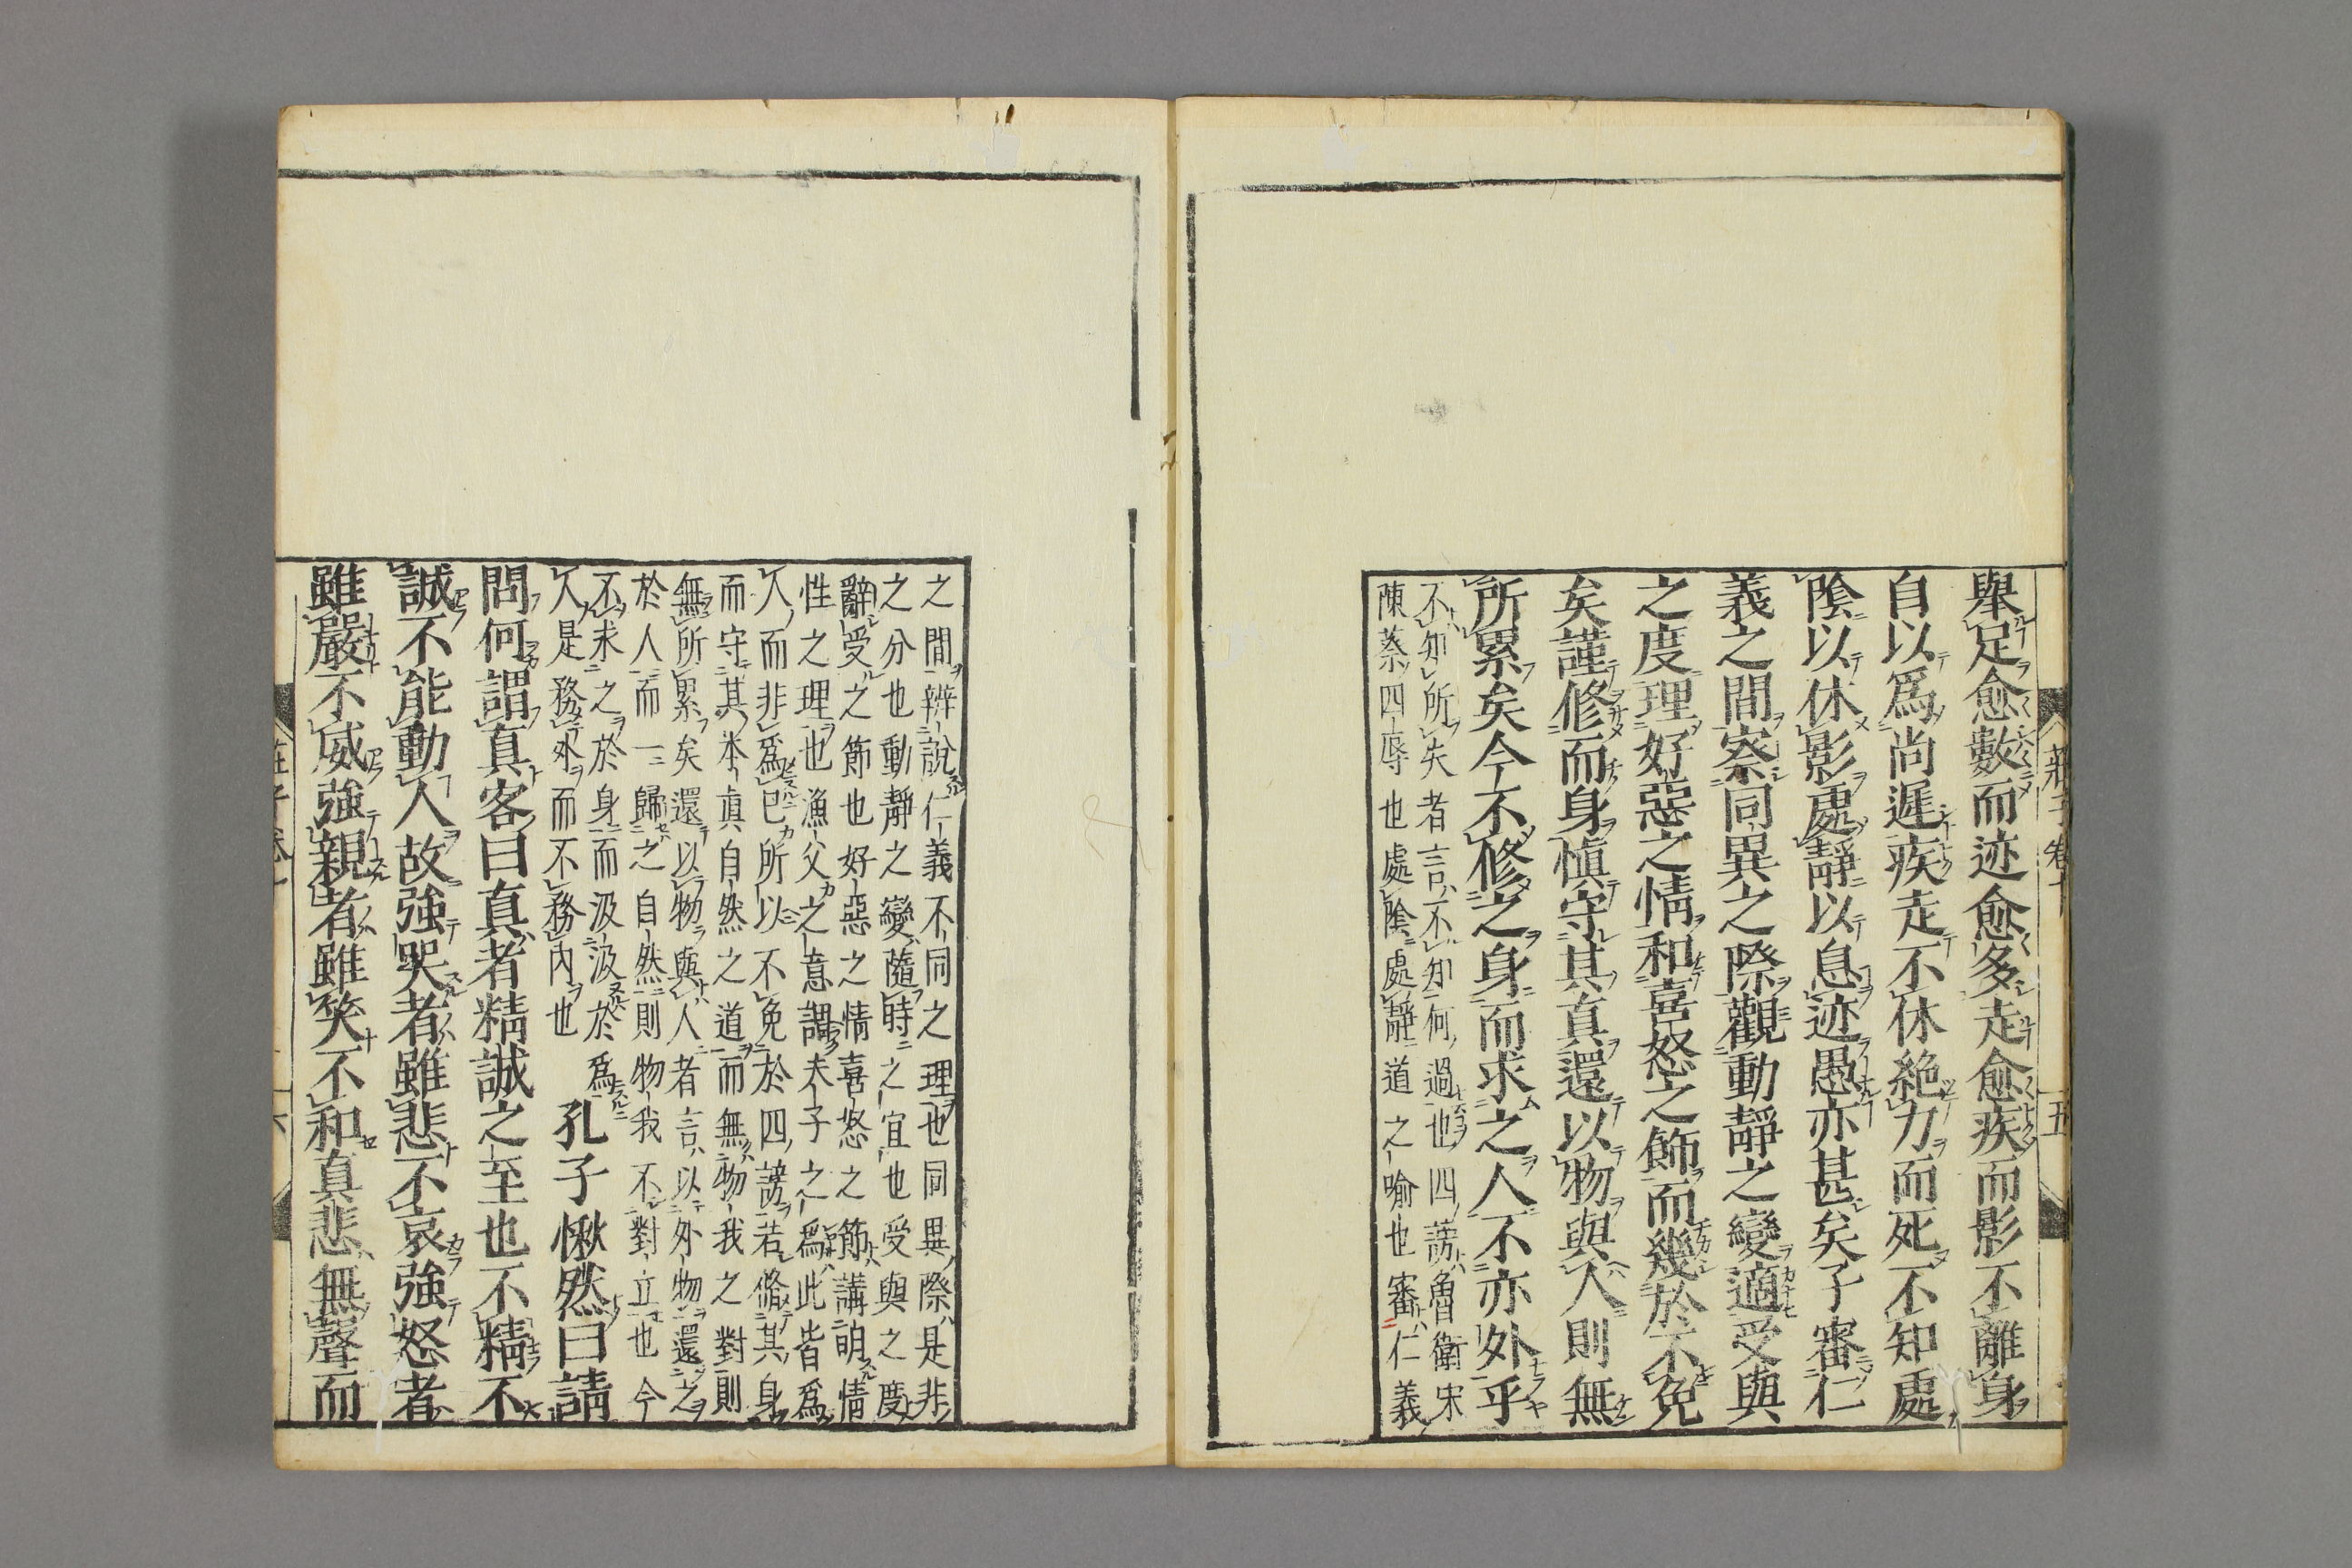 莊子卷十
五
舉足愈數而迹愈多走愈疾而影不離身
自以爲尚遲疾走不休絶力而死不知處
陰以休影處靜以息迹愚亦甚矣子審仁
義之間察同異之際觀動靜之變適受與
之度理好惡之情和喜怒之節而幾於不免
矣謹修而身愼守其真還以物與人則無
所累矣今不修之身而求之人不亦外乎
不知所失者言不知何過也四謗魯衛宋
陳蔡四辱也處陰處靜道之喩也審仁義
之間辨說仁義不同之理也同異際是非
之分也動靜之變隨時之宜也受與之度
辭受之節也好惡之情喜怒之節講明情
性之理也漁父之意謂夫子之爲此皆爲
人而非爲已所以不免於四謗若脩其身
而守其本眞自然之道而無物我之對則
無所累矣還以物與人者言以外物還之
於人而一歸之自然則物我不對立也今
不求之於身而汲汲於爲
人是務外而不務內也
孔子愀然曰請
問何謂真客曰真者精誠之至也不精不
誠不能動人故強哭者雖悲不哀強怒者
雖嚴不威強親者雖笑不和真悲無聲而